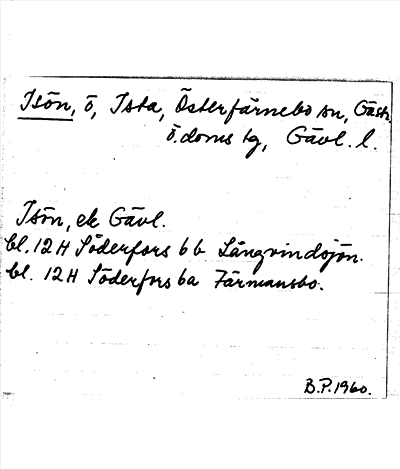 Isön, ö, Ista, Österfärnebo sn, Gästr.
ö. doms tg, Gävl. l.
Isön, ek Gävl.
bl. 12 H Söderfors 6 b Långvindsjön.
bl. 12 H Söderfors 6a Färmansbo.
B.P. 1960.